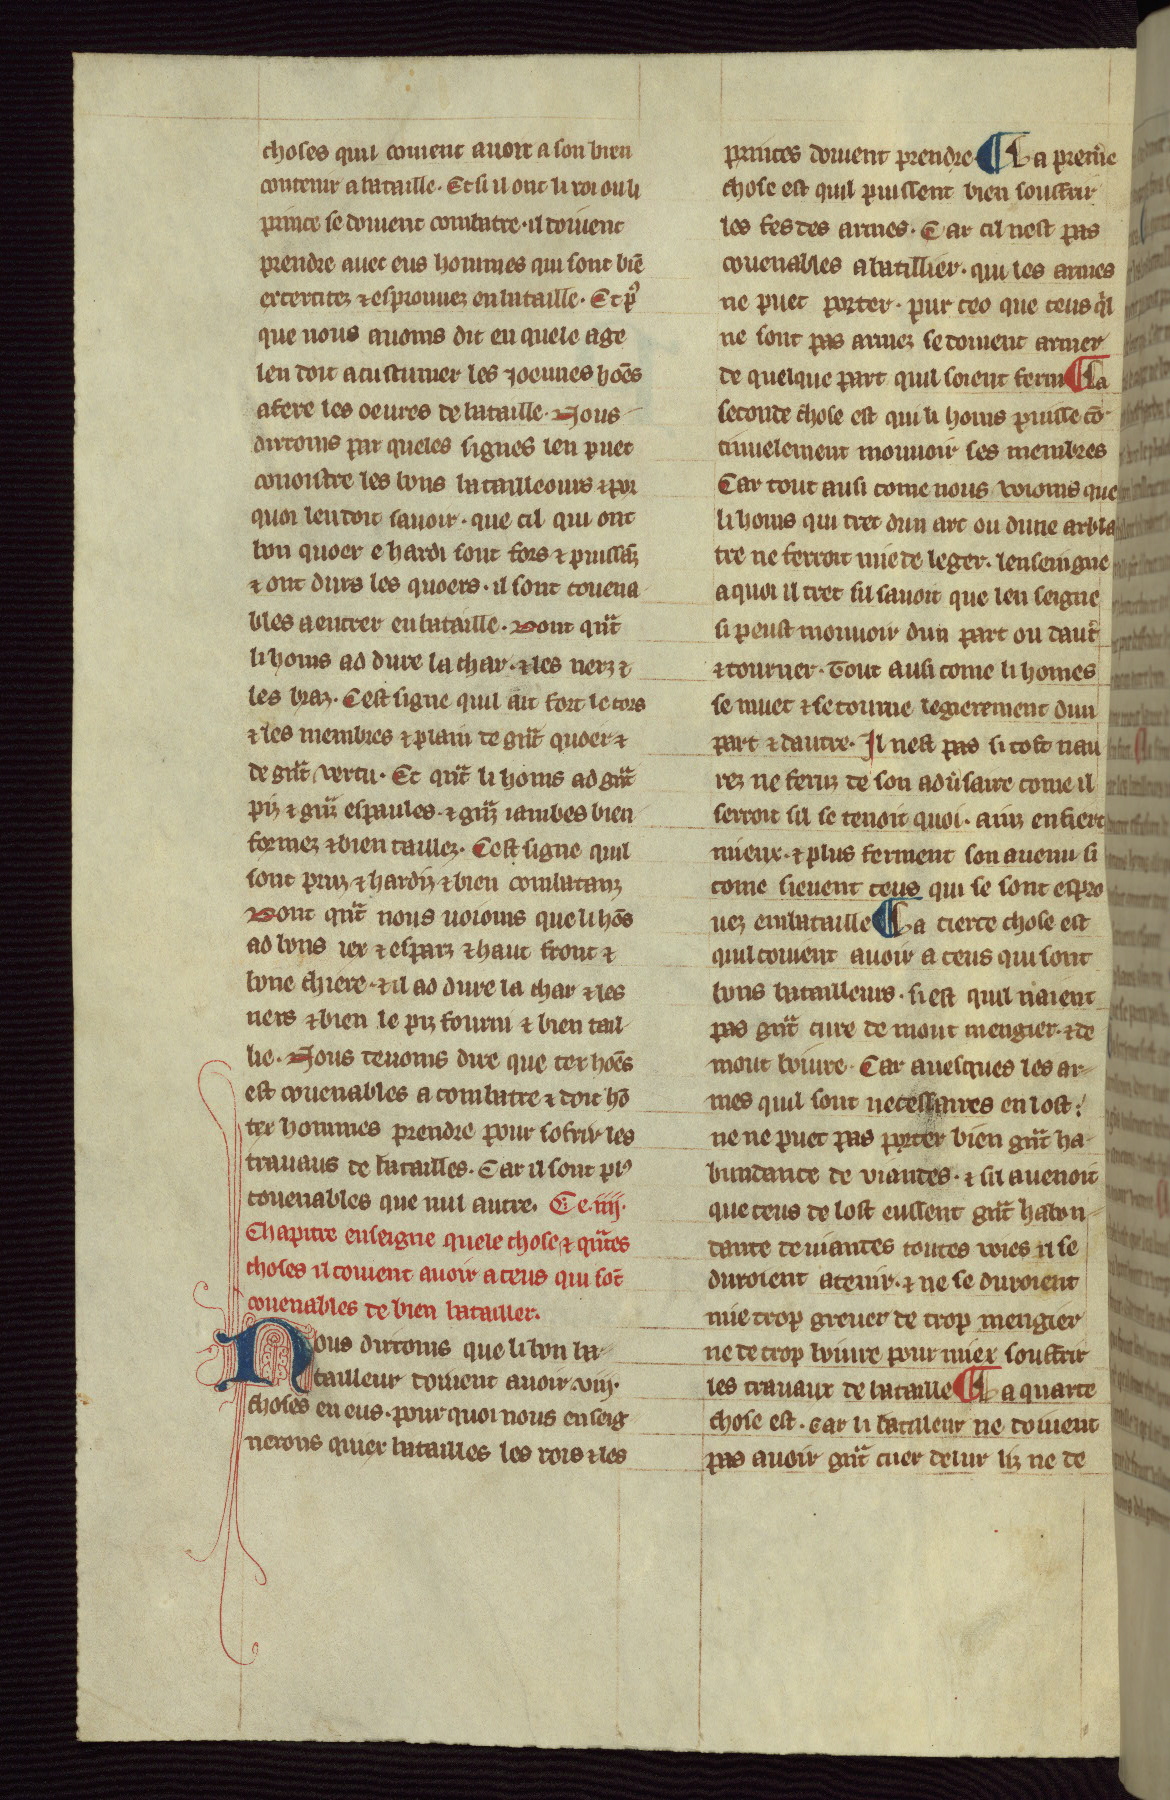 choses quil couient auoir a son bien
contenir a bataille. Et si il ont li roi ou li
prince se doiuent combatre. il doiuent
prendre auec eus hommes qui sont biē
excercitez ⁊ esprouuez en bataille. Et p᷑
que nous auoms dit en quele age
len doit acustumer les ioeunes hōēs
a fere les oeures de bataille. Nous
dirroms par queles signes len puet
conoistre les bons batailleours ⁊ por
quoi len doit sauoir. que cil qui ont
bon quoer e hardi sont fors ⁊ puissāz
⁊ ont durs les quoers. il sont couena
bles a entrer en bataille. Dont qn̄t
li homs ad dure la char. ⁊ les nerz ⁊
les braz. Cest signe quil ait fort le cors
⁊ les membres ⁊ plain de gn̄t quoer ⁊
de gn̄t vertu. Et qn̄t li homs ad gn̄t
piz ⁊ gn̄z espaules. ⁊ gn̄z iambes bien
formez ⁊ bien taillez. Cest signe quil
sont pruz ⁊ hardiz ⁊ bien combatanz
Dont qn̄t nous uoioms que li hōs
ad bons ier ⁊ esparz ⁊ haut front ⁊
bone chiere. ⁊ il ad dure la char ⁊ les
ners ⁊ bien le piz fourni ⁊ bien tail
lie. Nous deuoms dire que ter hōēs
est couenables a combatre ⁊ doit hō
ter hommes prendre pour sofrir les
trauaus de batailles. Car il sont pl᷒
couenables que nul autre. Ce .iiij.
Chapitre enseigne quele chose ⁊ qn̄tes
choses il couient auoir a ceus qui sōt
couenables de bien batailler.
Nous dirroms que li bon ba
tailleur doiuent auoir .viij.
choses en eus. pour quoi nous enseig
nerons quier batailles les rois ⁊ les
princes doiuent prendre ¶ La premie
chose est quil puissent bien souffrir
les fes des armes. Car cil nest pas
couenables a batillier. qui les armes
ne puet porter. pur ceo que ceus qil
ne sont pas armez se doiuent armer
de quelque part quil soient feruz ¶ La
seconde chose est qui li homs puisse cō
tinuelement mouuoir ses membres
Car tout ausi come nous voioms que
li homs qui tret dun arc ou dune arbla
tre ne ferroit mie de leger. lenseingne
a quoi il tret sil sauoit que len seigne
si peust mouuoir dun part ou daut᷑
⁊ tourner. Tout ausi come li homes
se muet ⁊ se tourne legierement dun
part ⁊ dautre. Il nest pas si tost nau
rez ne feruz de son adūsaire come il
serroit sil se tenoit quoi. ainz en fiert
mieux. ⁊ plus ferment son auenu si
come sieuent ceus qui se sont espro
uez en bataille ¶ La tierce chose est
quil couient auoir a ceus qui sont
bons batailleurs. si est quil naient
pas gn̄t cure de mout mengier. ⁊ de
mout boiure. Car auesques les ar
mes quil sont necessaires en lost:
ne ne puet pas porter bien gn̄t ha
bundance de viandes. ⁊ sil auenoit
que ceus de lost eussent gn̄t habon
dance de uiandes toutes voies il se
duroient atenir. ⁊ ne se duroient
mie trop greuer de trop mengier
ne de trop boiure pour miex souffrir
les trauaux de bataille ¶ La quarte
chose est. car li batileur ne doiuent
pas auoir gn̄t cuer de lur liz ne de